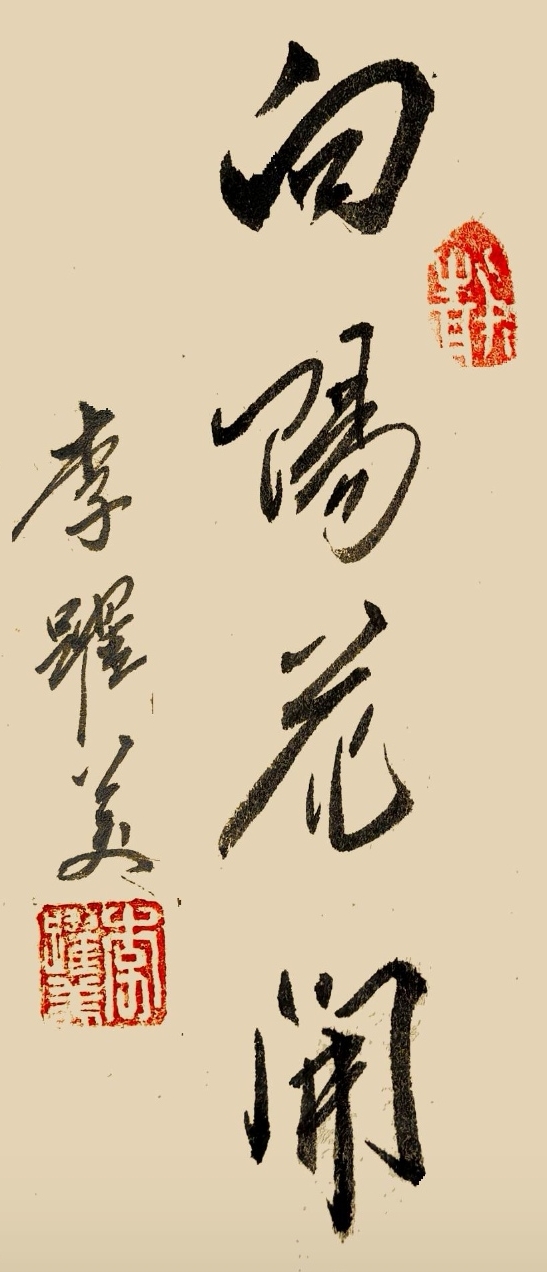 向陽花開
李躍美
李躍美